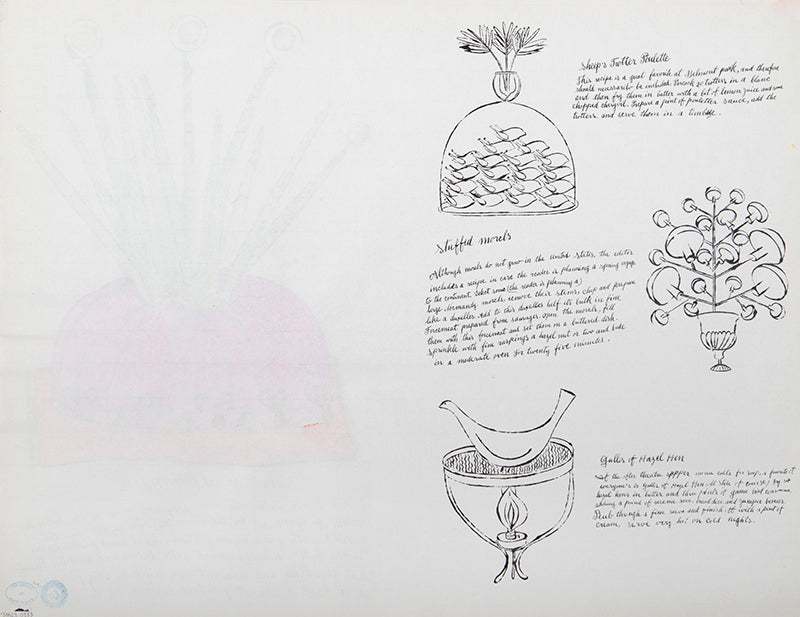 Sheep's Trotter Poulette
This recipe is a great favorite at Belmont park, and therefore
should necessarily be included. Precook 20 trotters in a blanc
and then fry them in butter with a bit of lemon juice and some
chopped chervil. Prepare a pint of poulette sauce, add the
trotters and serve them in a timbale.
Stuffed morels
Although morels do not grow in the United States, the editor
includes a recipe in case the reader is planning a spring voyage
to the continent. Select some (the reader is planning a)
large, normandy morels, remove their stems, chop and prepare
like a duxelles. Add to this duxelles half its bulk in fine
forcemeat prepared from sausages. open the morels, fill
them with this forcemeat and set them on a buttered dish.
sprinkle with fine raspings a hazel nut or two and bake
in a moderate oven for twenty five minutes.
Gulles of Hazel Hen
If the after theatre supper menu calls for soup, a favorite of
everyone's is Gulles of Hazel Hen
hazel hens in butter and then of game and
adding a pint of and juniper berries.
Rub through a fine sieve and finish it with a pint of
cream. serve very hot on cold nights.